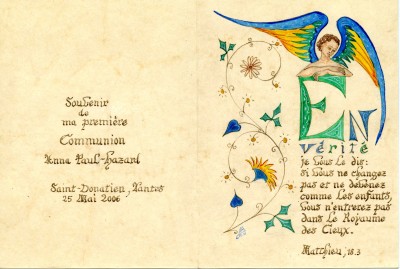 Souvenir
de
ma première
Communion
Anna Paul-Hazard
Saint-Donatien, Nantes
25 Mai 2006
EN
vérité
je vous le dis:
si vous ne changez
pas et ne devenez
comme les enfants,
vous n'entrerez pas
dans le Royaume
des Cieux.
Matthieu, 18.3